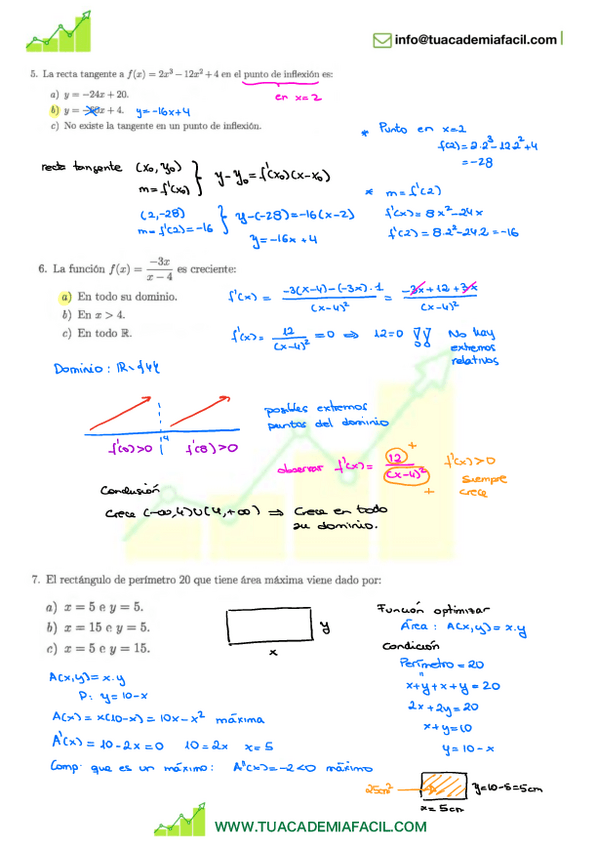 info@tuacademiafacil.com
5. La recta tangente a f(x) = 2x³ − 12x² + 4 en el punto de inflexión es:
en x=2
a) y = −24x + 20.
b) y = x + 4. y=-16x+4
c) No existe la tangente en un punto de inflexión.
* Punto en x=2
f(2)=2·2³-12·2²+4
=-28
recta tangente (x₀, y₀)
m=f'(x₀) } y-y₀=f'(x₀)(x-x₀)
* m=f'(2)
(2,-28)
m=f'(2)=-16 } y-(-28)=-16(x-2)
y=-16x+4
f'(x)=8x²-24x
f'(2)=8·2²-24·2=-16
6. La función f(x) = −3x / (x − 4) es creciente:
a) En todo su dominio.
b) En x > 4.
c) En todo ℝ.
f'(x) = -3(x-4)-(-3x)·1 / (x-4)² = -3x+12+3x / (x-4)²
f'(x)= 12/(x-4)² =0 ⇒ 12=0 !! No hay
extremos
relativos
Dominio: ℝ-{4}
posibles extremos
puntos del dominio
4
f'(0)>0 f'(8)>0
observar f'(x)= 12/(x-4)² + + f'(x)>0
siempre
crece
Conclusión
Crece (-∞,4)∪(4,+∞) ⇒ Crece en todo
su dominio.
7. El rectángulo de perímetro 20 que tiene área máxima viene dado por:
a) x = 5 e y = 5.
b) x = 15 e y = 5.
c) x = 5 e y = 15.
y
x
Función optimizar
Área: A(x,y)=x·y
Condición
Perímetro=20
x+y+x+y=20
2x+2y=20
x+y=10
y=10-x
A(x,y)=x·y
P: y=10-x
A(x)=x(10-x)=10x-x² máxima
A'(x)=10-2x=0 10=2x x=5
Comp. que es un máximo: A''(x)=-2<0 máximo
25cm²
y=10-5=5cm
x=5cm
WWW.TUACADEMIAFACIL.COM